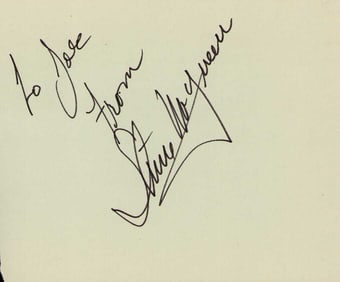 To Joe
From
Steve McQueen